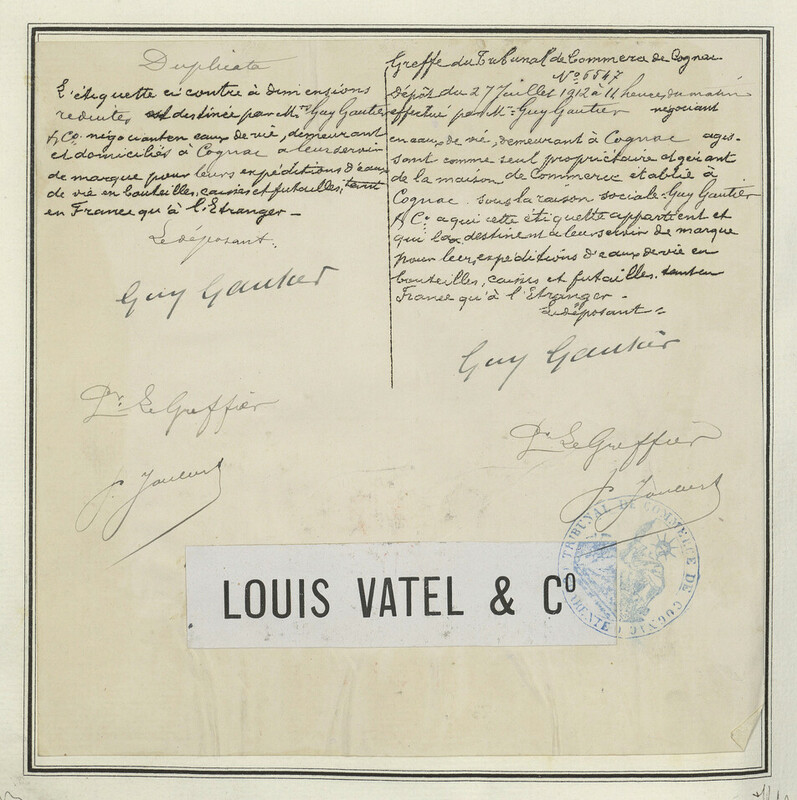 Duplicata
L'étiquette ci contre à dimensions
reduites, est destinée par M.rs Guy Gautier
& Co. négociants en eaux de vie, demeurant
et domiciliés à Cognac a leur servir
de marque pour leurs expéditions d'eaux
de vie en bouteilles, caisses et futailles, tant
en France qu'à l'Etranger _
Le déposant.
Guy Gautier
Pr. Le Greffier
Greffe du Tribunal de Commerce de Cognac
No 6547
Dépôt du 27 Juillet 1912 à 11 heures du matin
effectué par M. Guy Gautier négociant
en eaux de vie, demeurant à Cognac agis-
sant comme seul propriétaire et gérant
de la maison de Commerce etablie à
Cognac sous la raison sociale Guy Gautier
& Co. a qui cette étiquette appartient et
qui la destinent a leur servir de marque
pour leurs expéditions d'eaux de vie en
bouteilles, caisses et futailles tant en
France qu'à l'Etranger _
Le déposant =
Guy Gautier
Pr. Le Greffier
LOUIS VATEL & Co
TRIBUNAL DE COMMERCE DE COGNAC